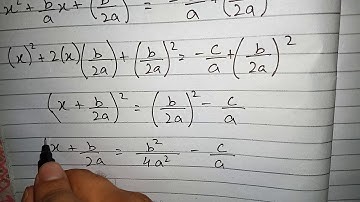 x² + b/a x + (b/2a)² = -c/a + (b/2a)²
(x)² + 2(x)(b/2a) + (b/2a)² = -c/a + (b/2a)²
(x + b/2a)² = (b/2a)² - c/a
x + b/2a = b²/4a² - c/a